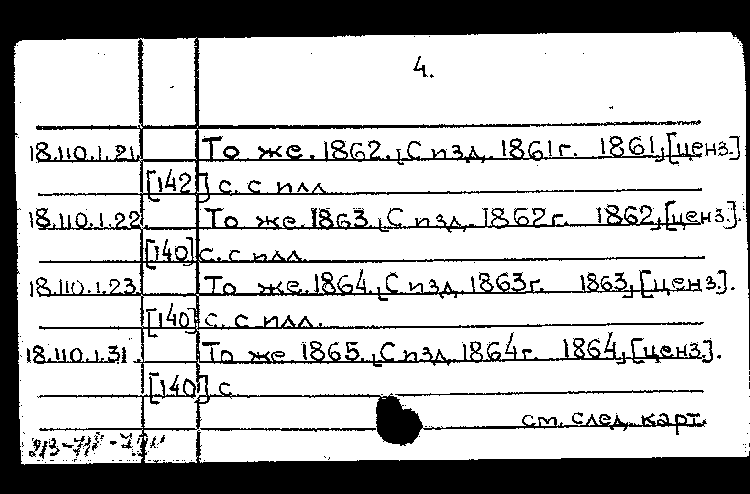 4.
18.110.1.21. То же. 1862. [С изд. 1861г. 1861, [ценз.]
[142] с. с илл.
18.110.1.22 То же. 1863. [С изд. 1862г. 1862, [ценз.].
[140] с. с илл.
18.110.1.23. То же. 1864. [С изд. 1863г. 1863, [ценз.].
[140] с. с илл.
18.110.1.31. То же 1865. [С изд. 1864г. 1864, [ценз].
[140] с.
см. след. карт.